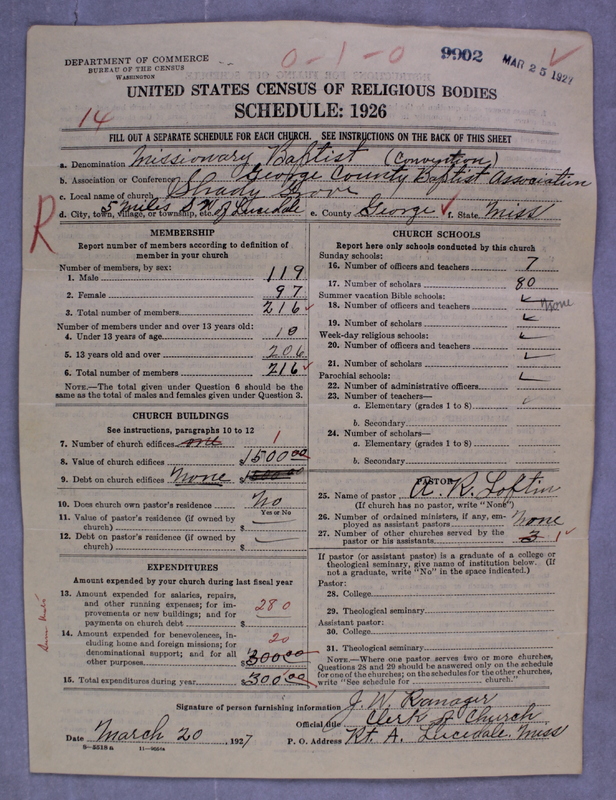 DEPARTMENT OF COMMERCE
BUREAU OF THE CENSUS
WASHINGTON
0-1-0
9902
MAR 25 1927
UNITED STATES CENSUS OF RELIGIOUS BODIES
SCHEDULE: 1926
14
FILL OUT A SEPARATE SCHEDULE FOR EACH CHURCH. SEE INSTRUCTIONS ON THE BACK OF THIS SHEET
a. Denomination Missionary Baptist (Convention)
b. Association or Conference George County Baptist Association
c. Local name of church Shady Grove
d. City, town, village, or township, etc. 5 miles S.W. of Lucedale e. County George f. State Miss
R
MEMBERSHIP
Report number of members according to definition of
member in your church
Number of members, by sex:
1. Male 119
2. Female 97
3. Total number of members 216
Number of members under and over 13 years old:
4. Under 13 years of age 10
5. 13 years old and over 206
6. Total number of members 216
NOTE.—The total given under Question 6 should be
same as the total of males and females given under Question 3.
CHURCH BUILDINGS
See instructions, paragraphs 10 to 12
7. Number of church edifices one 1
8. Value of church edifices $1500.00
9. Debt on church edifices None $
10. Does church own pastor's residence? No
Yes or No
11. Value of pastor's residence (if owned by
church) $
12. Debt on pastor's residence (if owned by
church) $
EXPENDITURES
Amount expended by your church during last fiscal year
13. Amount expended for salaries, repairs,
and other running expenses; for im-
provements or new buildings; and for
payments on church debt $ 280
14. Amount expended for benevolences, in-
cluding home and foreign missions; for
denominational support; and for all
other purposes $300.00 20
15. Total expenditures during year $300.00
CHURCH SCHOOLS
Report here only schools conducted by this church
Sunday schools:
16. Number of officers and teachers 7
17. Number of scholars 80
Summer vacation Bible schools:
18. Number of officers and teachers None
19. Number of scholars
Week-day religious schools:
20. Number of officers and teachers
21. Number of scholars
Parochial schools:
22. Number of administrative officers
23. Number of teachers—
a. Elementary (grades 1 to 8)
b. Secondary
24. Number of scholars—
a. Elementary (grades 1 to 8)
b. Secondary
PASTOR
25. Name of pastor A. R. Loftin
(If church has no pastor, write "None")
26. Number of ordained ministers, if any, em-
ployed as assistant pastors None
27. Number of other churches served by the
pastor or his assistants 3 1
If pastor (or assistant pastor) is a graduate of a college or
theological seminary, give name of institution below. (If
not a graduate, write "No" in the space indicated.)
Pastor:
28. College
29. Theological seminary
Assistant pastor:
30. College
31. Theological seminary
NOTE.—Where one pastor serves two or more churches,
Questions 28 and 29 should be answered only on the schedule
for one of the churches; on the schedules for the other churches,
write "See schedule for church."
Signature of person furnishing information J. W. Ranager
Official title Clerk of Church
Date March 20, 1927 P. O. Address Rt. A. Lucedale, Miss
8-5518a 11-9664a